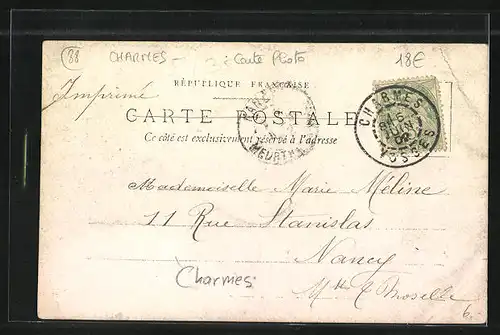 88 CHARMES - Carte Photo 18€
RÉPUBLIQUE FRANÇAISE
Imprimé
CARTE POSTALE
Ce côté est exclusivement réservé à l'adresse
CHARMES
VOSGES
MEURTHE
Mademoiselle Marie Méline
11 Rue Stanislas
Nancy
Charmes
Mthe & Moselle